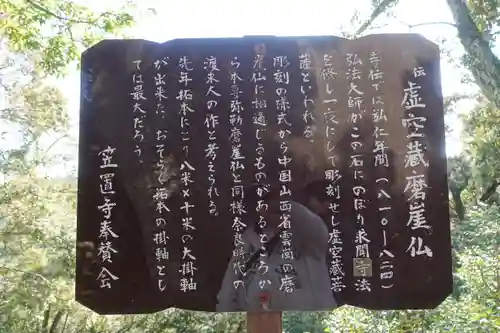 伝 虚空蔵磨崖仏
寺伝では弘仁年間(八一〇―八二四)
弘法大師がこの石にのぼり求聞寺法
を修し一夜にして彫刻せし虚空蔵菩
薩といわれる。
彫刻の様式から中国山西省雲崗の磨
崖仏に相通じるものがあるところか
ら本尊弥勒磨崖仏と同様奈良時代の
渡来人の作と考えられる。
先年拓本により八米×十米の大掛軸
が出来た。おそらく拓本の掛軸とし
ては最大だろう。
笠置寺奉賛会